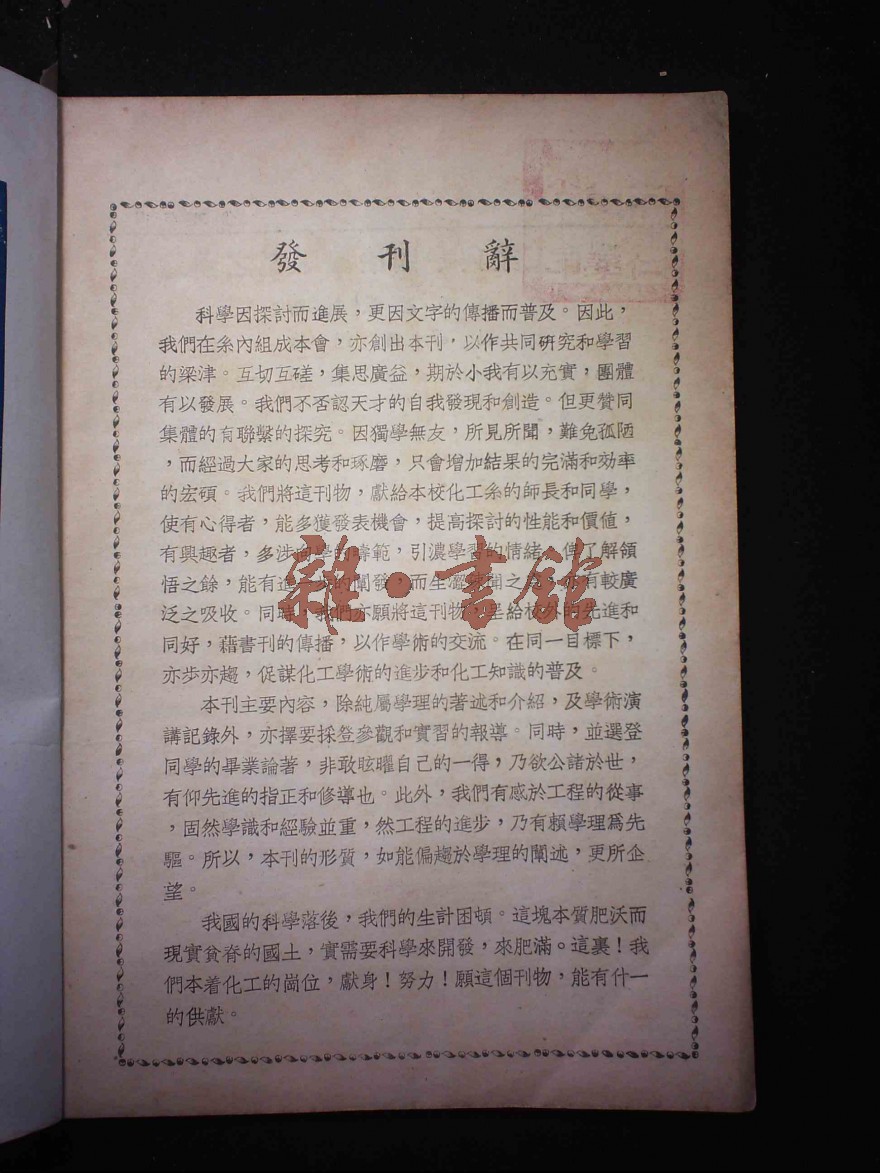 發刊辭
科學因探討而進展，更因文字的傳播而普及。因此，
我們在系內組成本會，亦創出本刊，以作共同研究和學習
的梁津。互切互磋，集思廣益，期於小我有以充實，團體
有以發展。我們不否認天才的自我發現和創造。但更贊同
集體的有聯繫的探究。因獨學無友，所見所聞，難免孤陋
，而經過大家的思考和琢磨，只會增加結果的完滿和效率
的宏碩。我們將這刊物，獻給本校化工系的師長和同學，
使有心得者，能多獲發表機會，提高探討的性能和價值，
有興趣者，多涉向學的疇範，引濃學習的情緒。俾了解領
悟之餘，能有進一步的闡發，而生澀之亦有較廣
泛之吸收。同時，我們亦願將這刊物，呈給校外的先進和
同好，藉書刊的傳播，以作學術的交流。在同一目標下，
亦步亦趨，促謀化工學術的進步和化工知識的普及。
本刊主要內容，除純屬學理的著述和介紹，及學術演
講記錄外，亦擇要採登參觀和實習的報導。同時，並選登
同學的畢業論著，非敢眩曜自己的一得，乃欲公諸於世，
有仰先進的指正和修導也。此外，我們有感於工程的從事
，固然學識和經驗並重，然工程的進步，乃有賴學理爲先
驅。所以，本刊的形質，如能偏趨於學理的闡述，更所企
望。
我國的科學落後，我們的生計困頓。這塊本質肥沃而
現實貧脊的國土，實需要科學來開發，來肥滿。這裏！我
們本着化工的崗位，獻身！努力！願這個刊物，能有什一
的供獻。
雜·書館